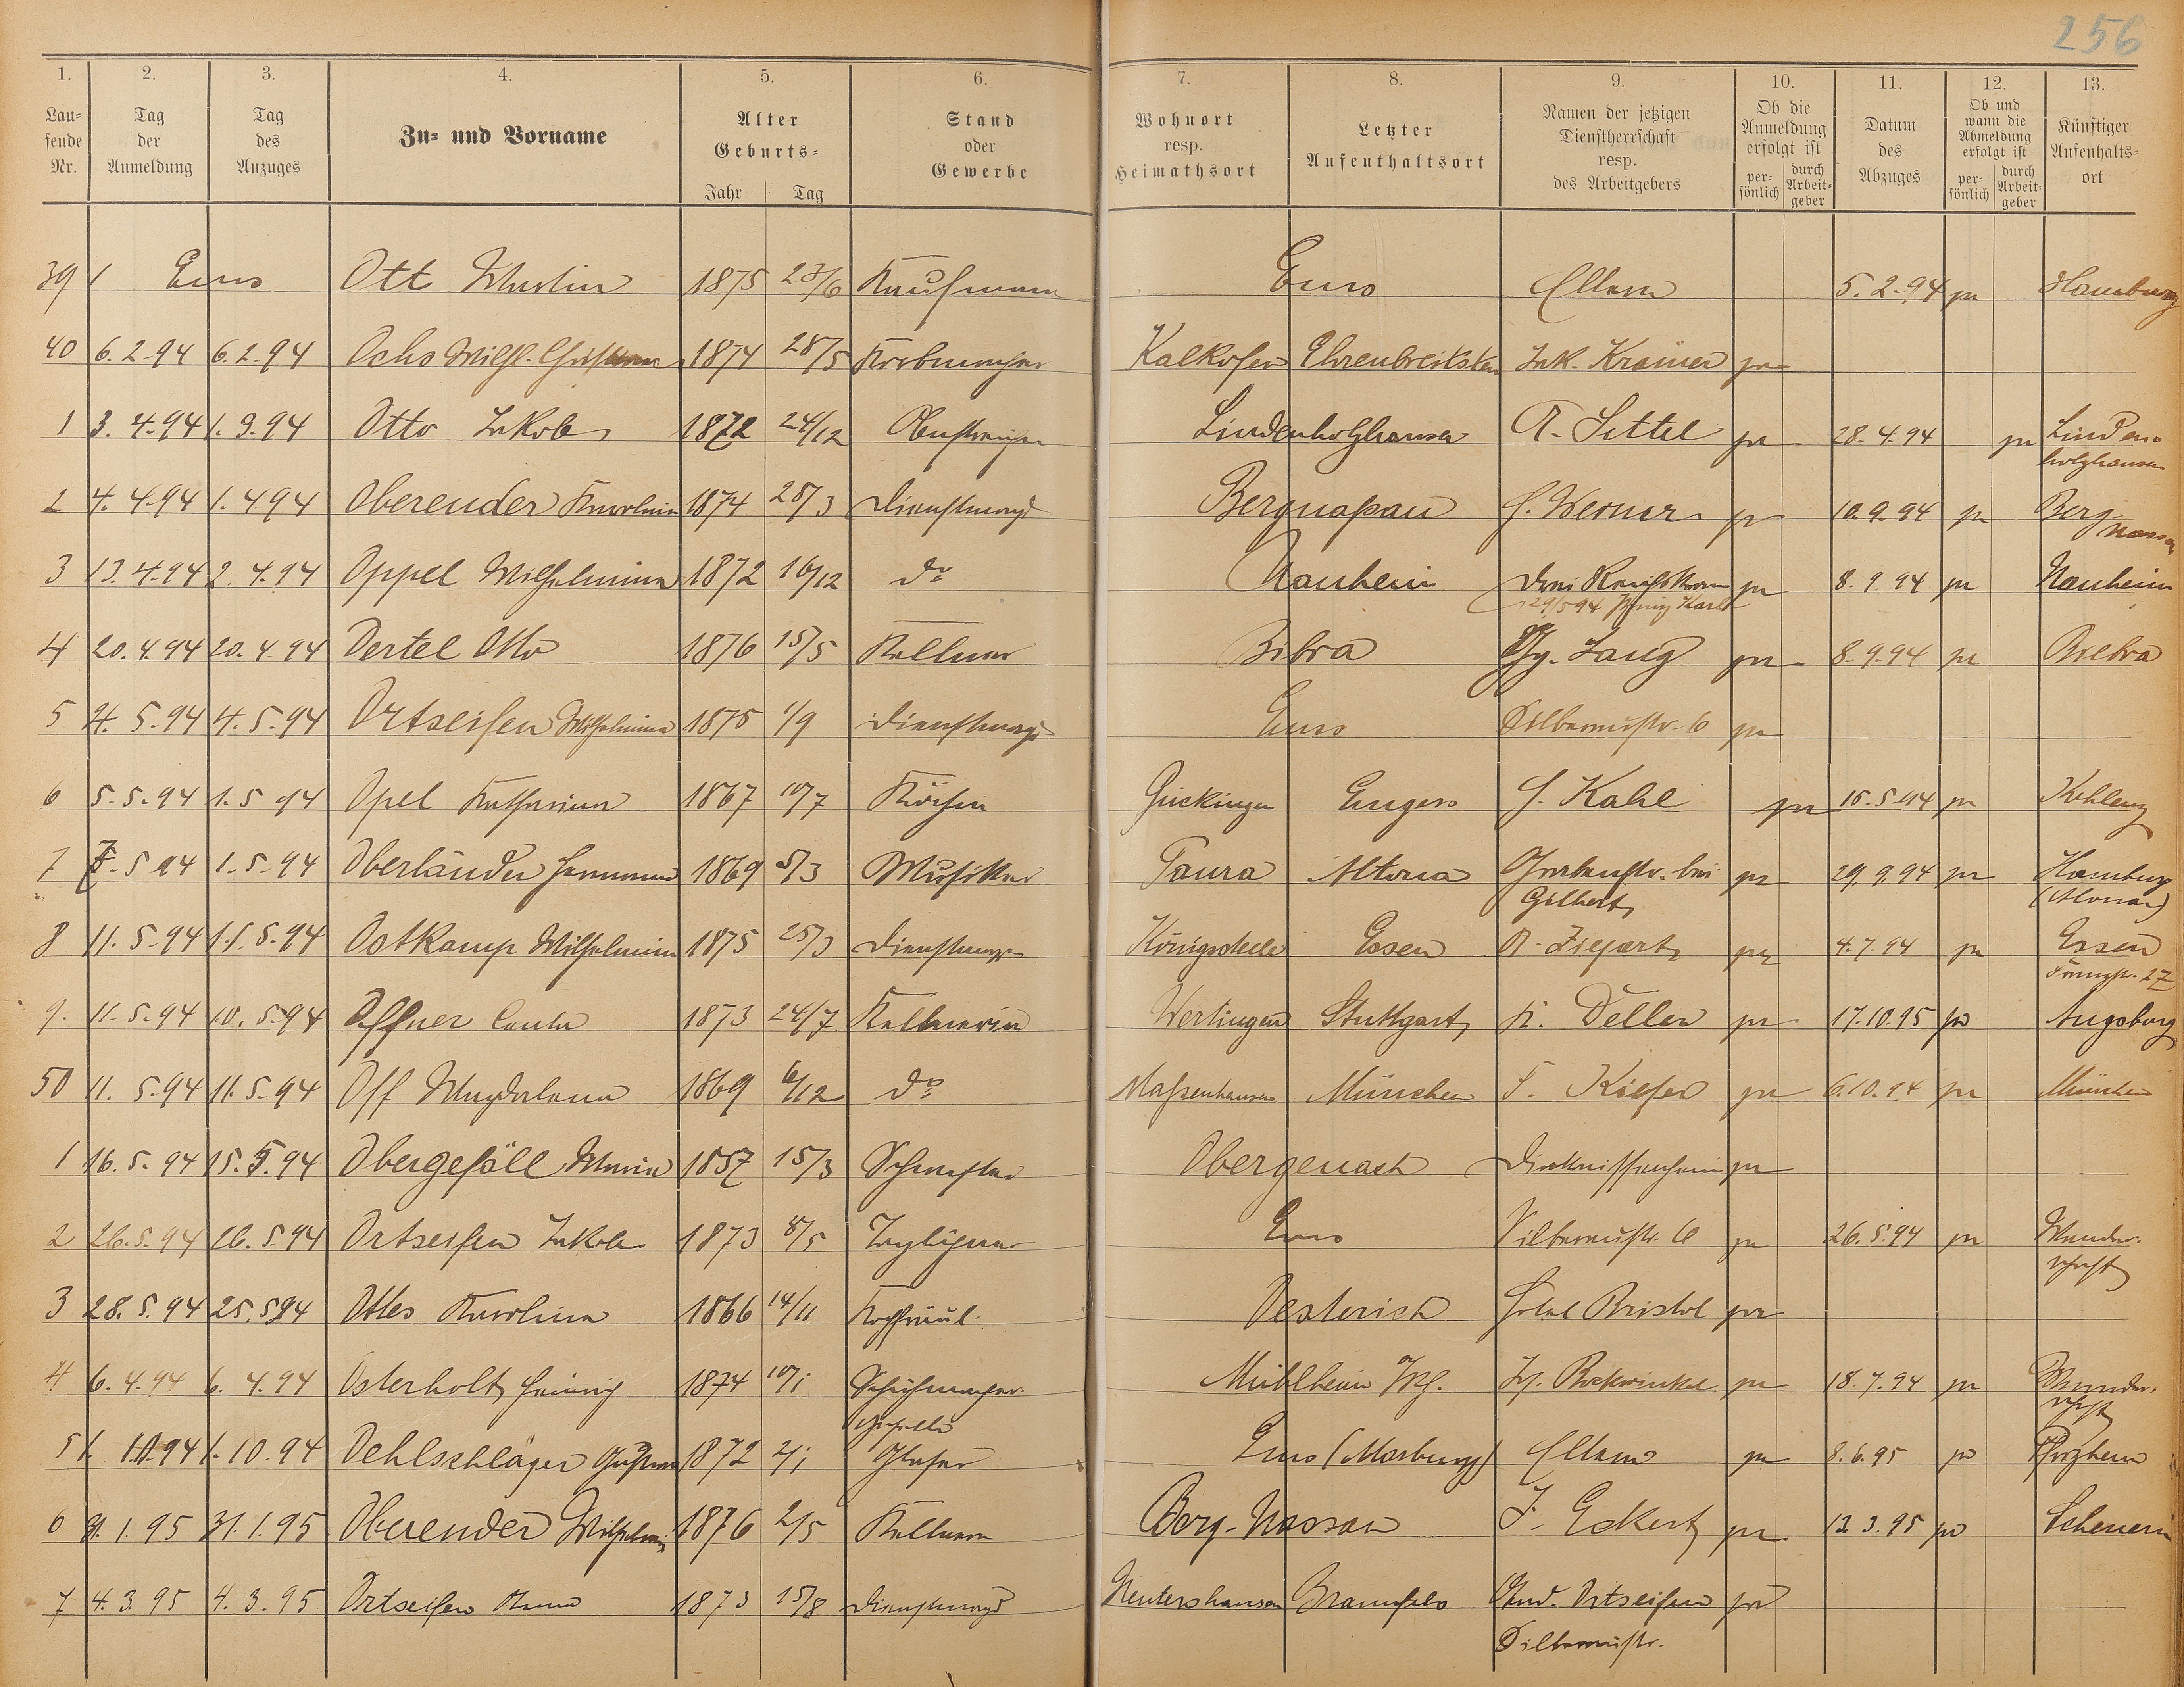 256
1. 2. 3. 4. 5. 6. 7. 8. 9. 10. 11. 12. 13.
Laufende Nr. | Tag der Anmeldung | Tag des Anzuges | Zu- und Vorname | Alter Geburts- Jahr Tag | Stand oder Gewerbe | Wohnort resp. Heimathsort | Letzter Aufenthaltsort | Namen der jetzigen Dienstherrschaft resp. des Arbeitgebers | Ob die Anmeldung erfolgt ist persönlich durch Arbeitgeber | Datum des Abzuges | Ob und wann die Abmeldung erfolgt ist persönlich durch Arbeitgeber | Künftiger Aufenthaltsort
39 Ems Ott Martin 1875 23/6 Kaufmann Ems Eltern 5.2.94 pr Hamburg
40 6.2.94 6.2.94 Ochs Wilh. 1874 28/5 Korbmacher Kalkofen Ehrenbreitstein Jak. Krämer pr
1 3.4.94 1.9.94 Otto Jakob 1872 24/12 Lindenholzhausen A. Sittel pr 28.4.94 pr Lindenholzhausen
2 4.4.94 1.4 94 Oberender Karolina 1874 28/3 Dienstmagd Bergnaßau H. Werner pr 10.9.94 pr Berg nassau
3 13.4.94 2.4.94 Oppel Wilhelmina 1872 16/12 do Nauheim Drei Reichskronen pr 8.9.94 pr Nauheim
29/5 94 Karl
4 20.4.94 20.4.94 Oertel Otto 1876 15/5 Kellner Bibra Gg. Lang pr 8.9.94 pr Biebra
5 4.5.94 4.5.94 Ortseifen Wilhelmina 1875 1/9 Dienstmagd Ems Silberaustr. 6 pr
6 5.5.94 1.5 94 Opel Katharina 1867 10/7 Köchin Gückingen Engers H. Kahl pr 15.5.94 pr Koblenz
7 7.5 94 1.5.94 Oberländer Hermann 1869 5/3 Musiker Taura Altona Grabenstr. bei pr 29.9.94 pr Hamburg
Gilbert (Altona)
8 11.5.94 11.5.94 Ostkamp Wilhelmina 1875 25/3 Dienstmagd Königssteele Essen A. Ziefart pr 4.7.94 pr Essen
9. 11.5.94 10.5.94 Offner 1873 24/7 Kellnerin Wertingen Stuttgart K. Deller pr 17.10.95 pr Augsburg
50 11.5.94 11.5.94 Off Magdalena 1869 6/12 do Maßenhausen München F. Kiefer pr 6.10.94 pr München
1 16.5.94 15.5.94 Obergefäll Maria 1857 15/3 Schwester Diakonissenheim pr
2 26.5.94 26.5.94 Ortseifen Jakob 1873 8/5 Taglöhner Ems Silberaustr. 6 pr 26.5.94 pr Wanderschaft
3 28.5.94 25.5.94 Ottes Karolina 1866 14/11 Kochfräul. Oesterich Hotel Bristol pr
4 6.4.94 6.4.94 Osterholt Heinrich 1874 10/1 Schuhmachergeselle Mühlheim Rockwinkel pr 18.7.94 pr Wanderschaft
5 1.10.94 1.10.94 Oehlschläger Gustav 1872 2/1 Glaser Ems (Marburg) Eltern pr 8.6.95 pr Pforzheim
6 31.1.95 Oberender Wilhelmine 1876 2/5 Kellnerin Berg-Nassau J. Eckert pr 12.3.95 pr Scheuern
7 4.3.95 4.3.95 Ortseifen Anna 1873 15/8 Dienstmagd Nentershausen And. Ortseifen pr
Silberaustr.